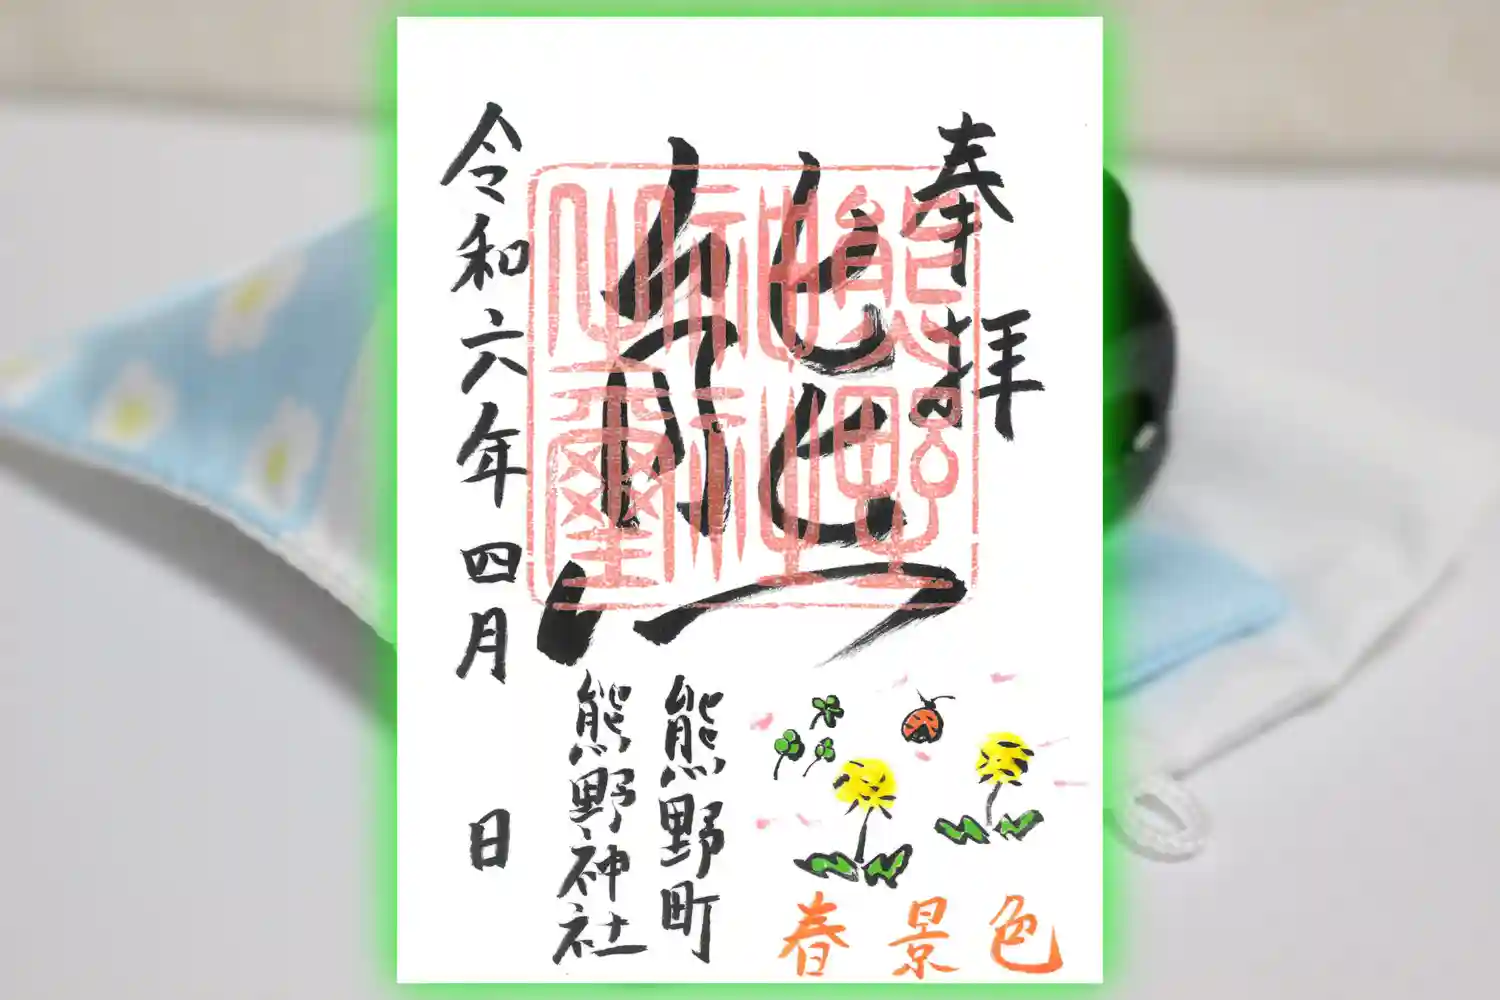 奉拝
熊野神社之璽
熊野町
熊野神社
令和六年四月 日
春景色